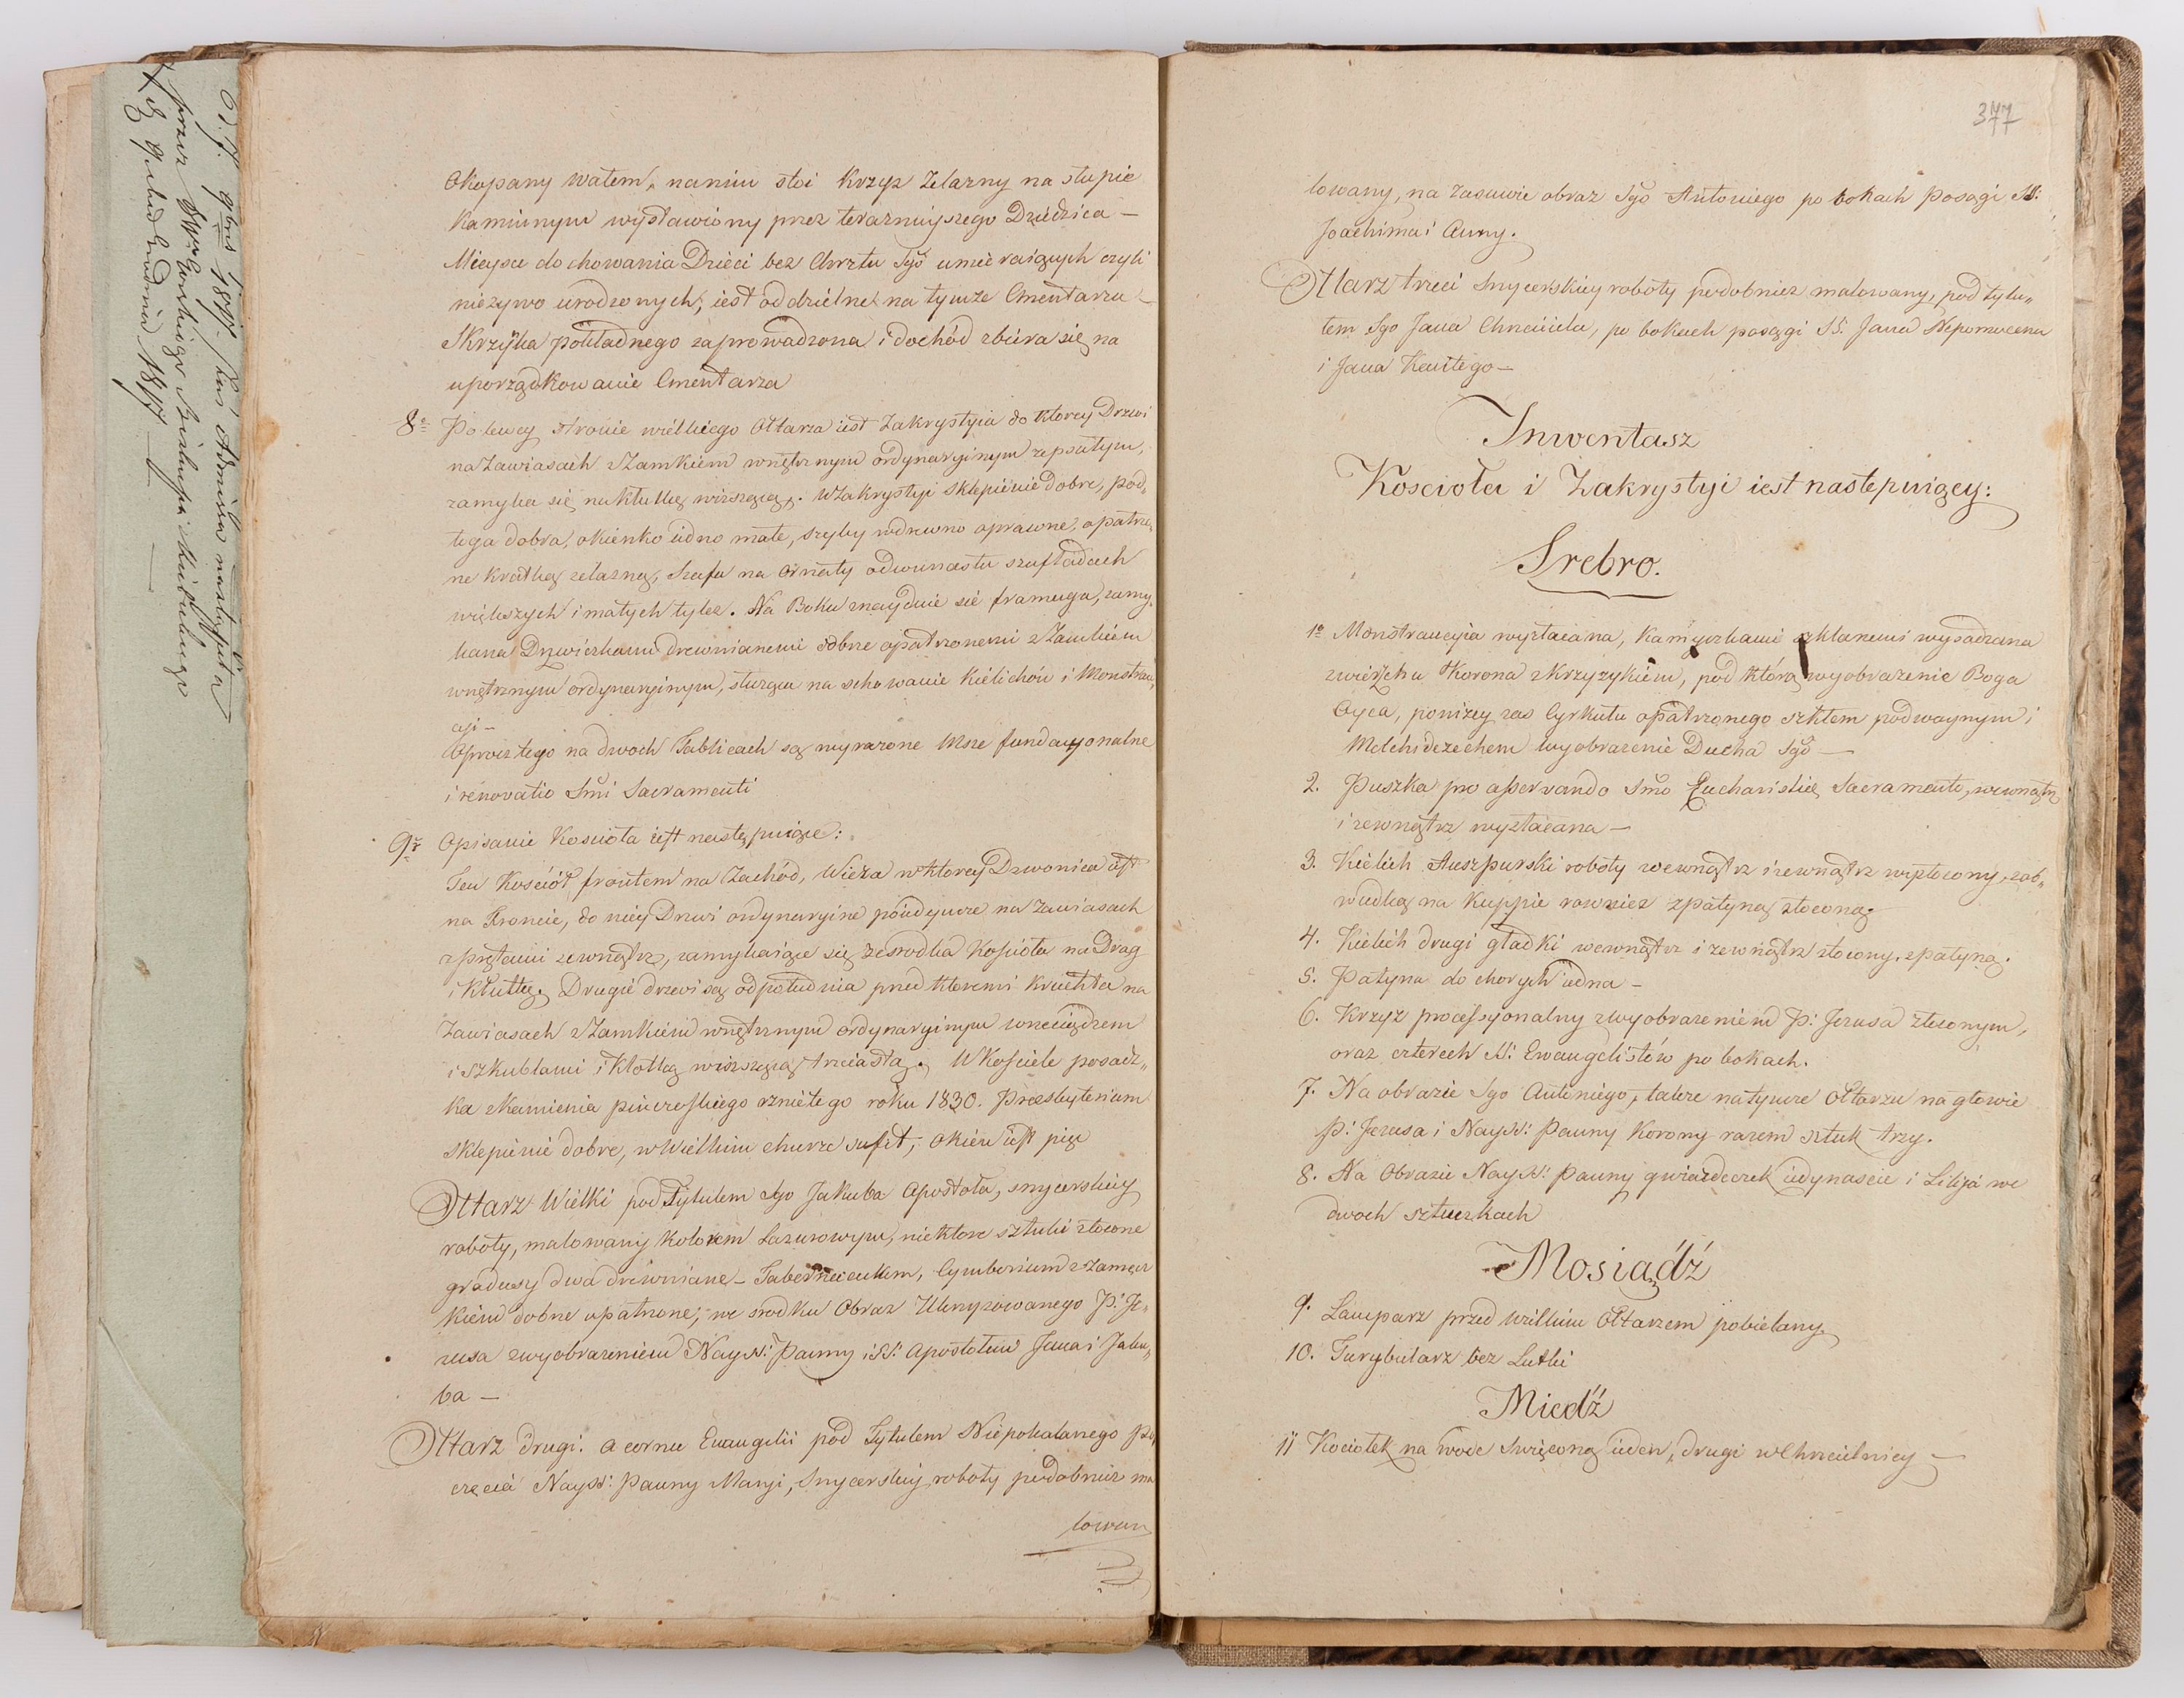 Okopany wałem, na nim stoi Krzyż Żelazny na słupie
Kamiennym wystawiony przez teraznieyszego Dziedzica —
Mieysce do chowania Dzieci bez Chrztu Sgo umieraiących czyli
nieżywo urodzonych, iest oddzielne na tymże Cmentarzu —
Skrzynka pokładnego zaprowadzona i dochód zbiera się na
uporządkowanie Cmentarza
8e Po lewey stronie wielkiego Ołtarza iest Zakrystyia do ktorey Drzwi
na Zawiasach z Zamkiem wnętrznym ordynaryinym zepsutym,
zamyka się na Kłutkę wiszącą. w Zakrystyi sklepienie dobre, pod„
łoga dobra, okienko iedno małe, szyby w drewno oprawne, opatrzo„
ne Kratką żelazną, Szafa na Ornaty o dwunastu szufladach
większych i małych tyleż. Na Boku znayduie się framuga, zamy„
kana Drzwiczkami drewnianemi dobrze opatrzonemi z Zamkiem
wnętrznym ordynaryinym, służąca na schowanie Kielichów i Monstran„
cyi —
Oprocz tego na dwoch Tablicach są wyrażone Msze fundacyonalne
i renovatio Smi Sacramenti
9e Opisanie Kościoła iest następuiące:
Ten Kościół frontem na Zachód, Wieża w ktorey Dzwonica iest
na Froncie, do niey Drzwi ordynaryine poiedyncze na Zawiasach
z prętami zewnątrz, zamykaiące się ze srodka Kościoła na Drąg
i Kłutkę. Drugie drzwi są od południa przed ktoremi Kruchta na
Zawiasach z Zamkiem wnętrznym ordynaryinym wrzeciądzem
i szkublami i Kłotką wiszącą trzeciastą. W Kościele posadz„
ka z Kamienia pinczoskiego rzniętego roku 1830. Praesbyterium
sklepienie dobre, w Wielkim churze sufit, Okien iest pięć
Ołtarz Wielki pod Tytułem Sgo Jakuba Apostoła, snycerskiey
roboty, malowany Kolorem Lazurowym, niektore sztuki złocone
gradusy dwa drewniane — Tabernaculum, Cymborium z Zamecz„
kiem dobrze opatrzone; we srodku Obraz Ukrzyżowanego P: Je„
zusa z wyobrażeniem NayśS: Panny i SS: Apostołow Jana i Jaku„
ba —
Ołtarz drugi. a cornu Evangelii pod Tytułem Niepokalanego Po„
częcia NayśS: Panny Maryi, Snycerskiey roboty podobnież ma
lowan
377
lowany, na Zasuwie obraz Sgo Antoniego po bokach Posągi SS:
Joachima i Anny.
Ołtarz trzeci Snycerskiey roboty podobnież malowany, pod tytu„
łem Sgo Jana Chrzciciela, po bokach posągi SS: Jana Nepomucena
i Jana Kantego —
Inwentasz
Kościoła i Zakrystyi iest następuiący:
Srebro.
1e Monstrancyia wyzłacana, Kamyczkami szklanemi wysadzana
z wierzchu Korona z Krzyzykiem, pod którą wyobrażenie Boga
Oyca, poniżey zas Cyrkułu opatrzonego szkłem podwoynym i
Melchidezechem wyobrażenie Ducha Sgo —
2. Puszka pro asservando Smo Eucharistiae Sacramento, wewnątrz
i zewnątrz wyzłacana —
3. Kielich Auszpurski roboty wewnątrz i zewnątrz wyzłocony, z ob„
wudką na Kuppie rownież z patyną złoconą.
4. Kielich drugi gładki wewnątrz i zewnątrz złocony, z patyną.
5. Patyna do chorych iedna —
6. Krzyż processyonalny z wyobrażeniem P: Jezusa złoconym,
oraz czterech SS: Ewangelistów po bokach.
7. Na obrazie Sgo Antoniego, także na tymże Ołtarzu na głowie
P: Jezusa i NayśS: Panny Korony razem sztuk trzy.
8. Na Obrazie NayśS: Panny gwiazdeczek iedynascie i Lilija we
dwoch sztuczkach
Mosiądź
9. Lamparz przed wielkim Ołtarzem pobielany
10. Turybularz bez Lutki
Miedź
11 Kociołek na wodę Święconą ieden, drugi w Chrzcielnicy —